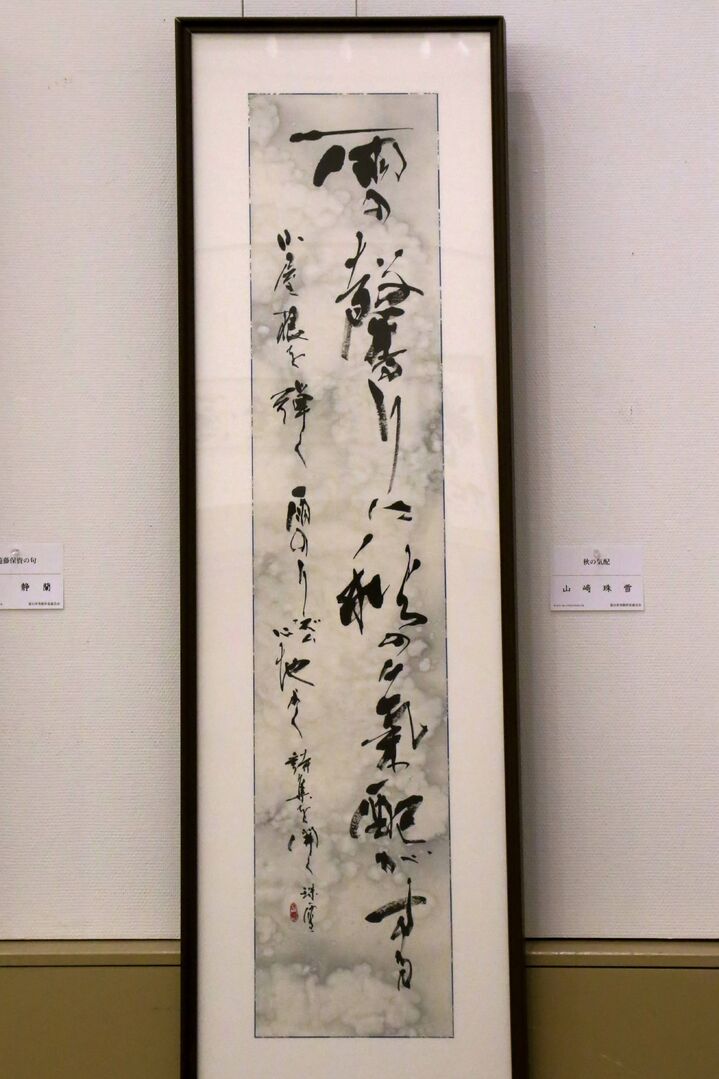 雨の馨りに秋の氣配がする
小屋根を彈く雨のリズム心地よく詩集を開く 珠雪
の句
静 蘭
秋の気配
山 崎 珠 雪